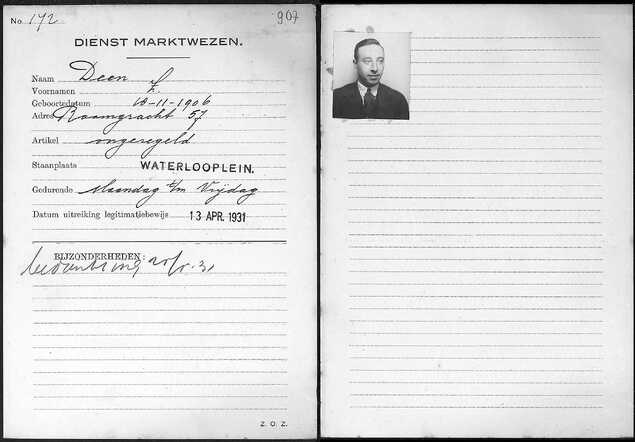 No 172
907
DIENST MARKTWEZEN.
Naam Deen
Voornamen
Geboortedatum 10-11-1906
Adres Raamgracht 57
Artikel ongeregeld
Staanplaats WATERLOOPLEIN.
Gedurende Maandag t/m Vrijdag
Datum uitreiking legitimatiebewijs 13 APR. 1931
BIJZONDERHEDEN:
Z. O. Z.